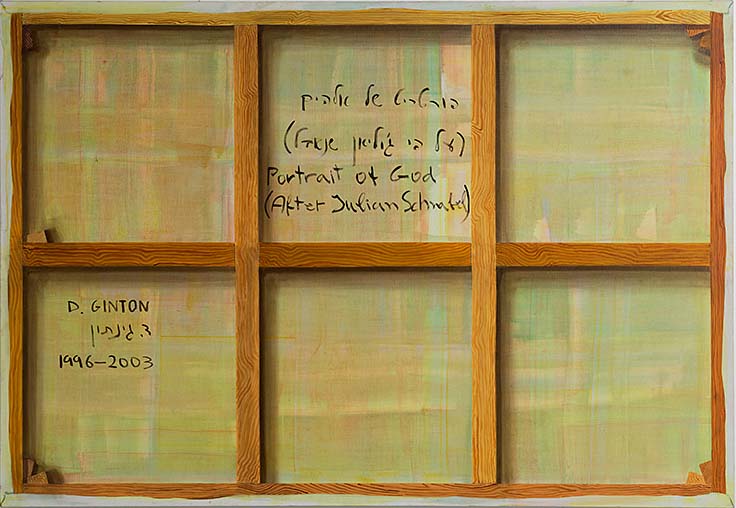 פורטרט של אלהים
(על פי ג'וליאן שנאבל)
Portrait of God
(After Julian Schnabel)
D. GINTON
ד. גינתון
1996–2003